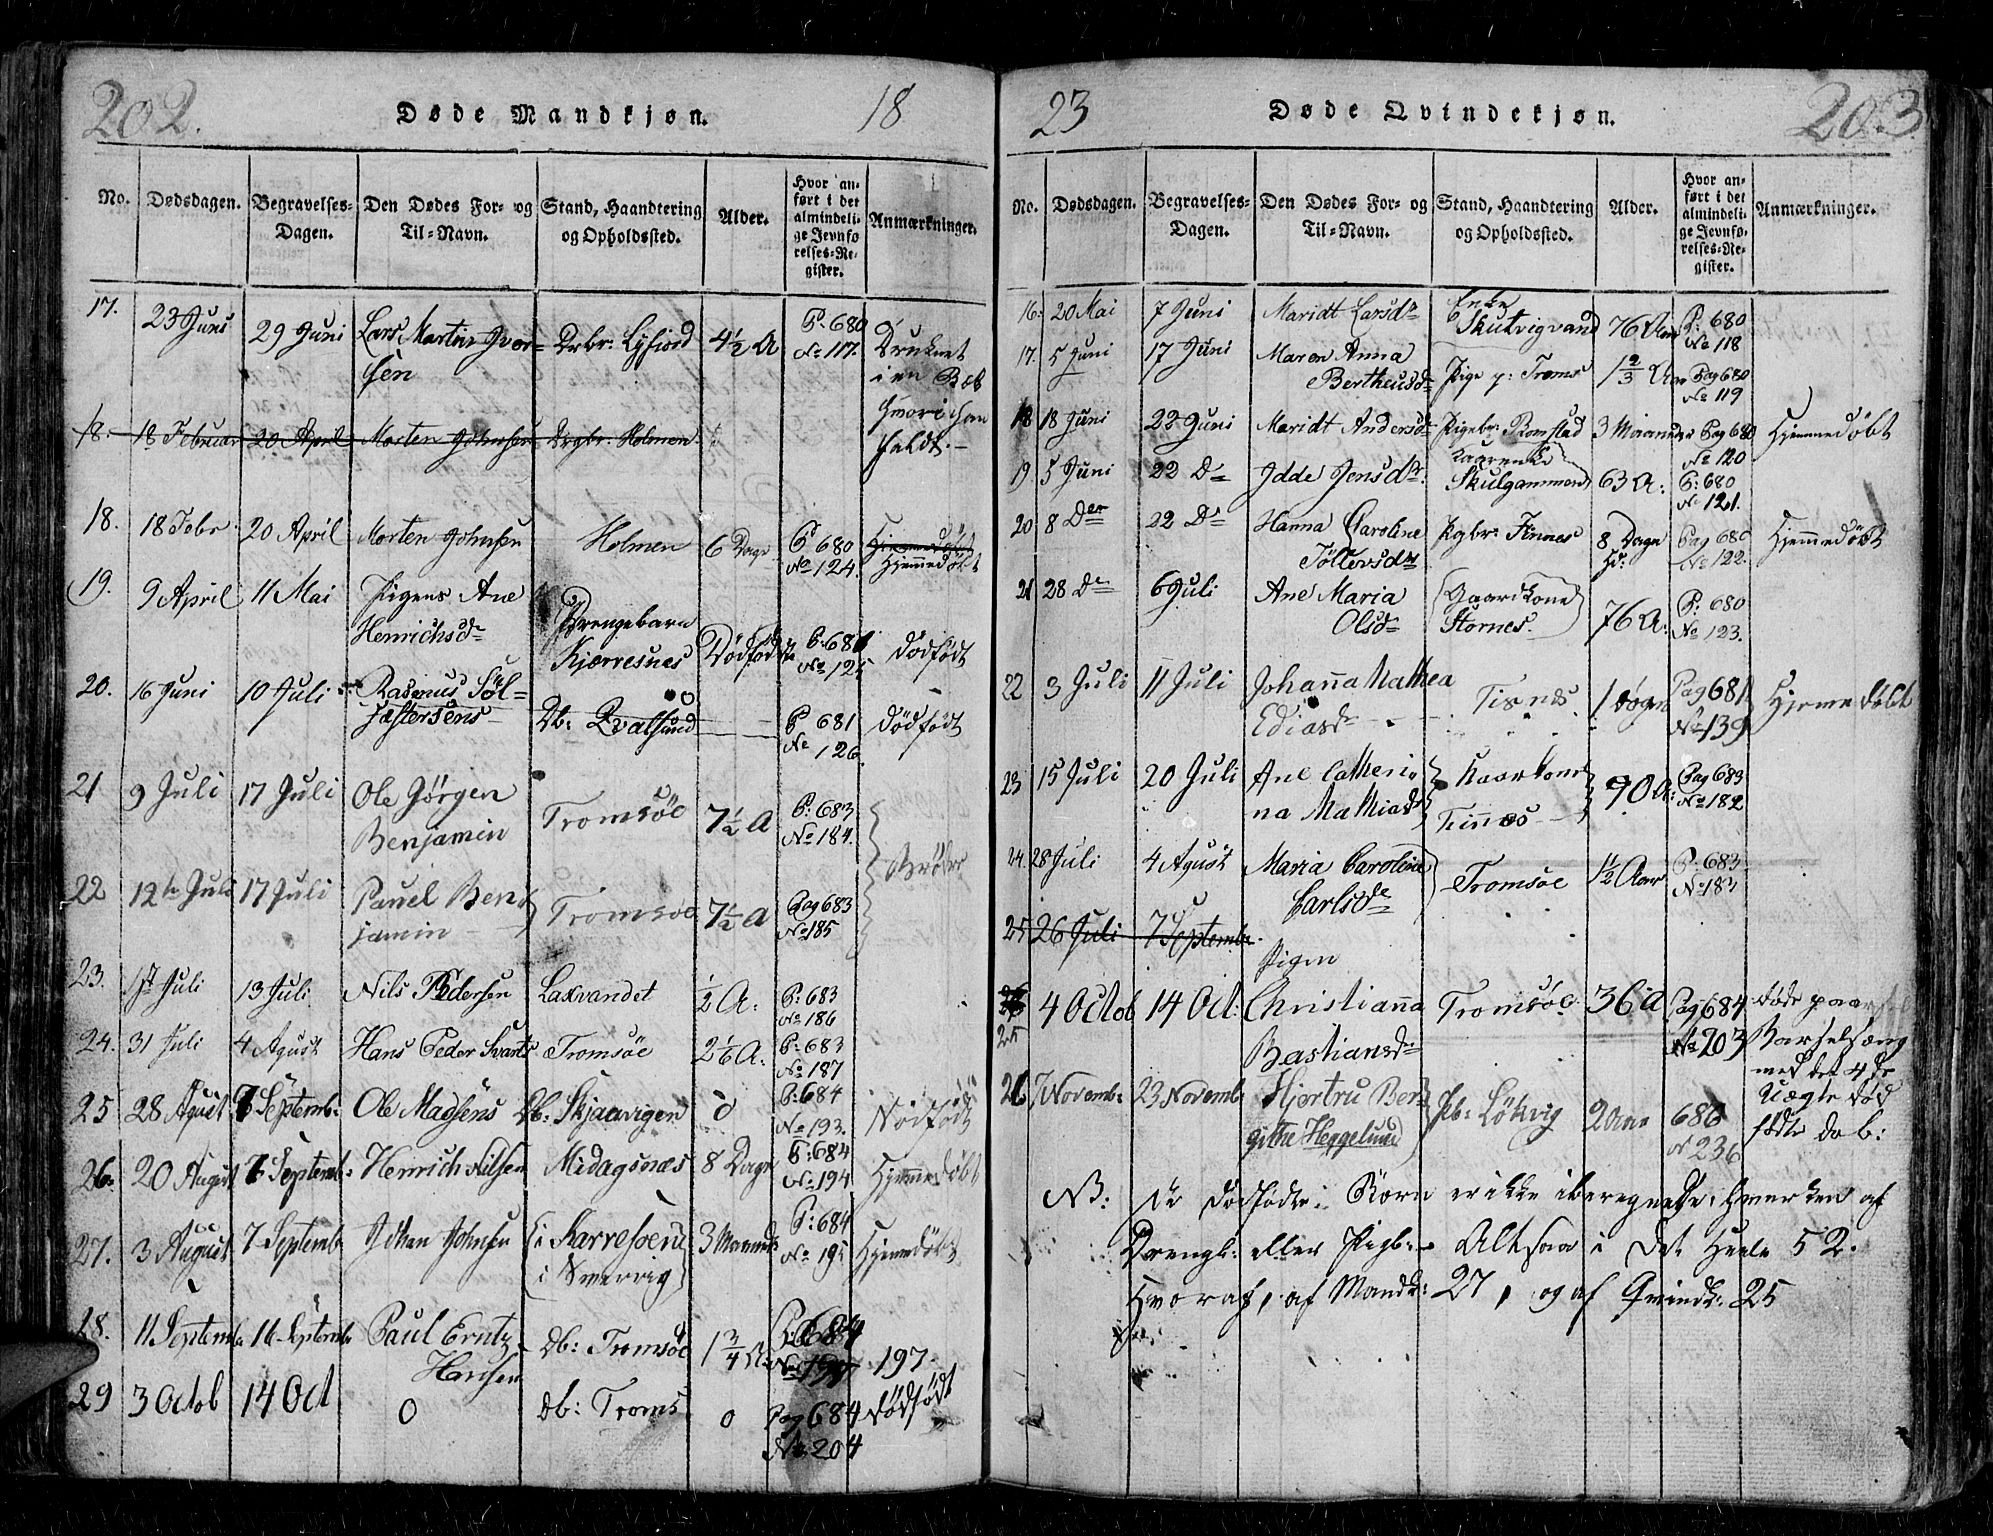 202.
Døde Mandkjøn.
18
No. Dødsdagen. Begravelses-Dagen. Den Dødes For- og Til-Navn. Stand, Haandtering og Opholdssted. Alder. Hvor anført i det almindelige Jevnførelses-Register. Anmærkninger.
17. 23 Juni 29 Juni Lars Martin Iver= Drbr: Lyfiord 4½ A P. 680 Druknet
sen No 117. i en Bæk
hvori han
faldt.
18. 18 Februar 20 April Morten Johnsen Drgbr: Holmen
18. 18 Febr. 20 April Morten Johnsen Holmen 6 Dage P 680 Hjemmedøbt
No 124. Hjemmedøbt
19. 9 April 11 Mai Pigens Ane Drengebarn
Henrichsdr Kjærresnes Dødfødte P: 681 dødfødt
No 125
20. 16 Juni 10 Juli Rasmus Søl=
fæstersens Db: Qvalsund P 681 dødfødt
No 126.
21 9 Juli 17 Juli Ole Jørgen Tromsøe 7½ A P: 683
Benjamin No 184.
Brødre
22 12te Juli 17 Juli Pauel Ben Tromsøe 7½ A Pag 683
jamin No 185
23. 1st Juli 13 Juli Nils Pedersen Laxvandet ½ A: P: 683
No 186
24. 31 Juli 4 Agust Hans Peder Svarts Tromsøe 2⅙ A: P: 683
No 187
25 28 Agust 7 Septemb: Ole Madsens Db: Skjaavigen 0 P: 684 Dødfødt
No 193.
26. 20 August 7 Septemb: Henrich Nilsen Midagsnæs 8 Dage P: 684 Hjemmedøbt
No 194
27. 3 August 7 Septemb Johan Johnsen i 3 Maaneds P: 684 Hjemmedøbt
i No 195
28. 11 Septemb 16 Septemb Paul Erntz Db: Tromsøe 1¾ A P: 684
Hansen No 197 197
29 3 Octob 14 Oct 0 db: Troms 0 Pag 684 dødfødt
No. 204
23
Døde Qvindekjøn.
203
No. Dødsdagen. Begravelses-Dagen. Den Dødes For- og Til-Navn. Stand, Haandtering og Opholdssted. Alder. Hvor anført i det almindelige Jevnførelses-Register. Anmærkninger.
16. 20 Mai 7 Juni Maridt Larsdr Enke
Skutvigvand 76 Aar P: 680
No 118
17. 5 Juni 17 Juni Maren Anna
Bertheusdr Pige p: Troms 1⅔ Aar Pag 680
No 119
18 18 Juni 22 Juni Maridt Andersdr Pigebr: Ramstad 3 Maaneder Pag 680 Hjemmedøbt
No 120
19 5 Juni 22 Do Idde Jensdr. Skulgammen 63 A: P: 680
No 121.
20 8 Der 22 Do Hanna Caroline Pigbr: Finnes 8 Dage Pag 680 Hjemmedøbt
Tøllevsdr No 122.
21 28 De 6 Juli Ane Maria Gaardkone 76 A: P: 680
Olsdr Stornes. No 123.
22 3 Juli 11 Juli Johanna Mathea Tisnes 1 døgn Pag 681 Hjemedøbt
Ediasdr No 139
23 15 Juli 20 Juli Ane Catheri Kaarkone 90 A: Pag 683
na Mathiasdr Finnes No 182
24. 28 Juli 4 Agust Maria Caroline Tromsøe 1½ Aar P: 683
Carlsdr No 183
25 26 Juli 7 Septembr.
Pigen
26 4 Octob 14 Oct: Christianna Tromsøe 36 A Pag 684 døde paa
25 Bastiansdr No 203 Barselsæng
med det 4de
Uægte død
fødte db:
26 7 Novemb: 23 Novemb Hjertru Ber Pb: Løkvig 2 Aar 686
githe Heggelund N 236
NB: De dødfødte Børn er ikke iberegnede, hverken af
Drengb: eller Pigb: Altsaa i Det Heele 52.
Hvoraf, af Mandk: 27, og af Qvindk: 25